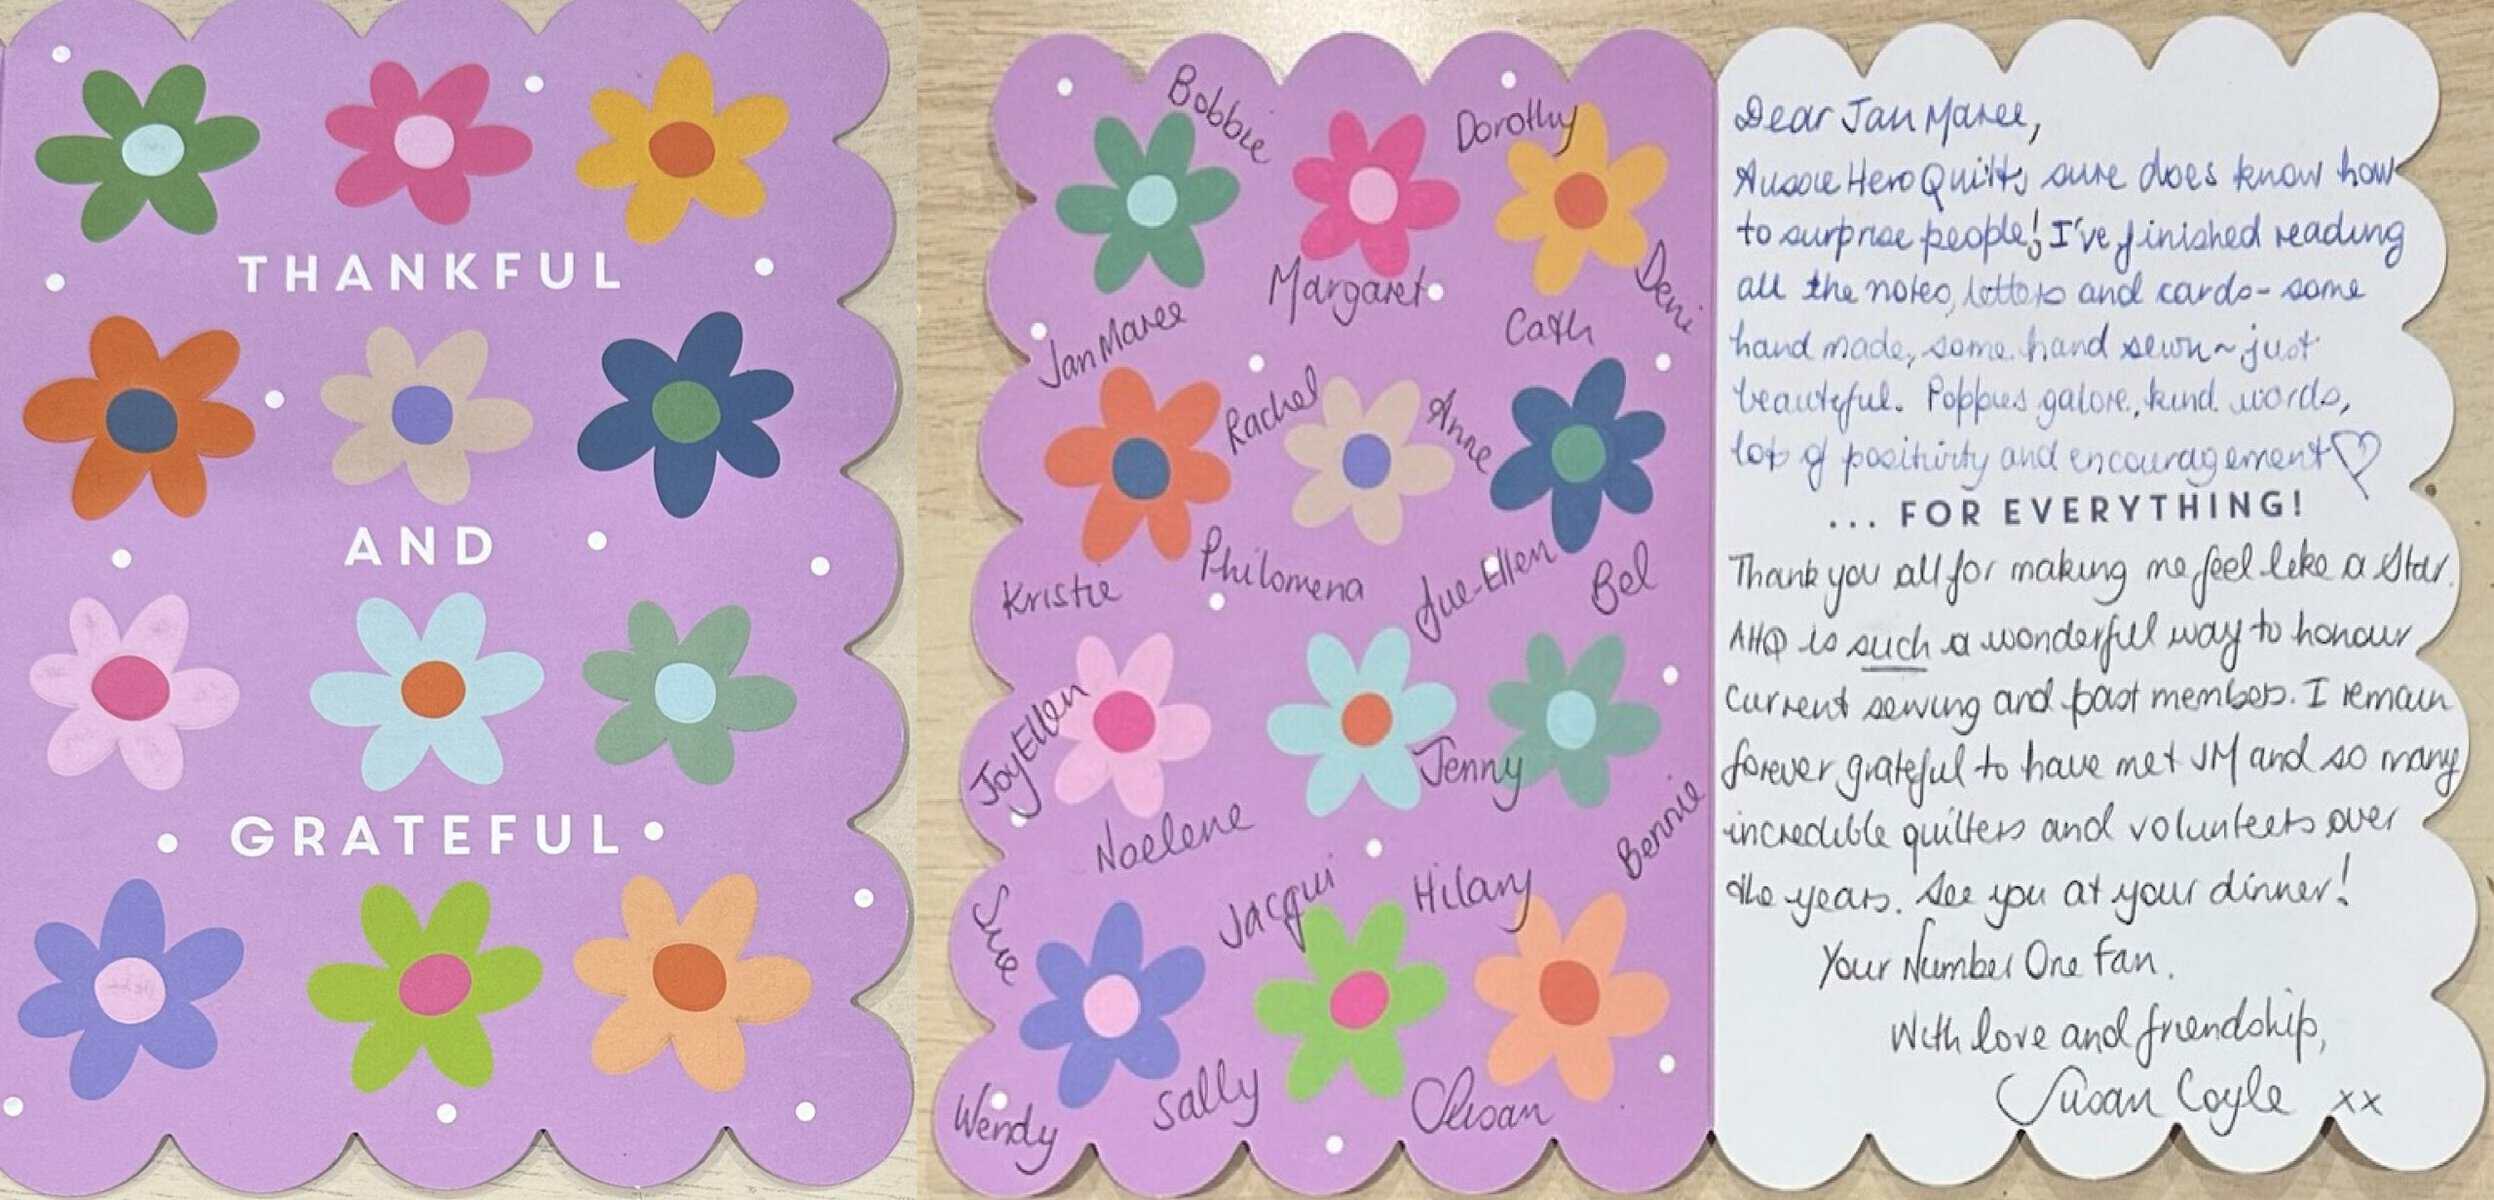 THANKFUL
AND
GRATEFUL
Bobbie
Dorothy
Margaret
Deni
Jan Maree
Cath
Rachel
Anne
Kristie
Philomena
Sue-Ellen
Bel
JoyEllen
Jenny
Noelene
Bennie
Sue
Jacqui
Hilary
Wendy
Sally
Susan
Dear Jan Maree,
Aussie Hero Quilts sure does know how
to surprise people! I've finished reading
all the notes, letters and cards - some
hand made, some hand sewn ~ just
beautiful. Poppies galore, kind words,
lots of positivity and encouragement ♡
... FOR EVERYTHING!
Thank you all for making me feel like a star.
AHQ is such a wonderful way to honour
current serving and past members. I remain
forever grateful to have met JM and so many
incredible quilters and volunteers over
the years. See you at your dinner!
Your Number One Fan.
With love and friendship,
Susan Coyle xx